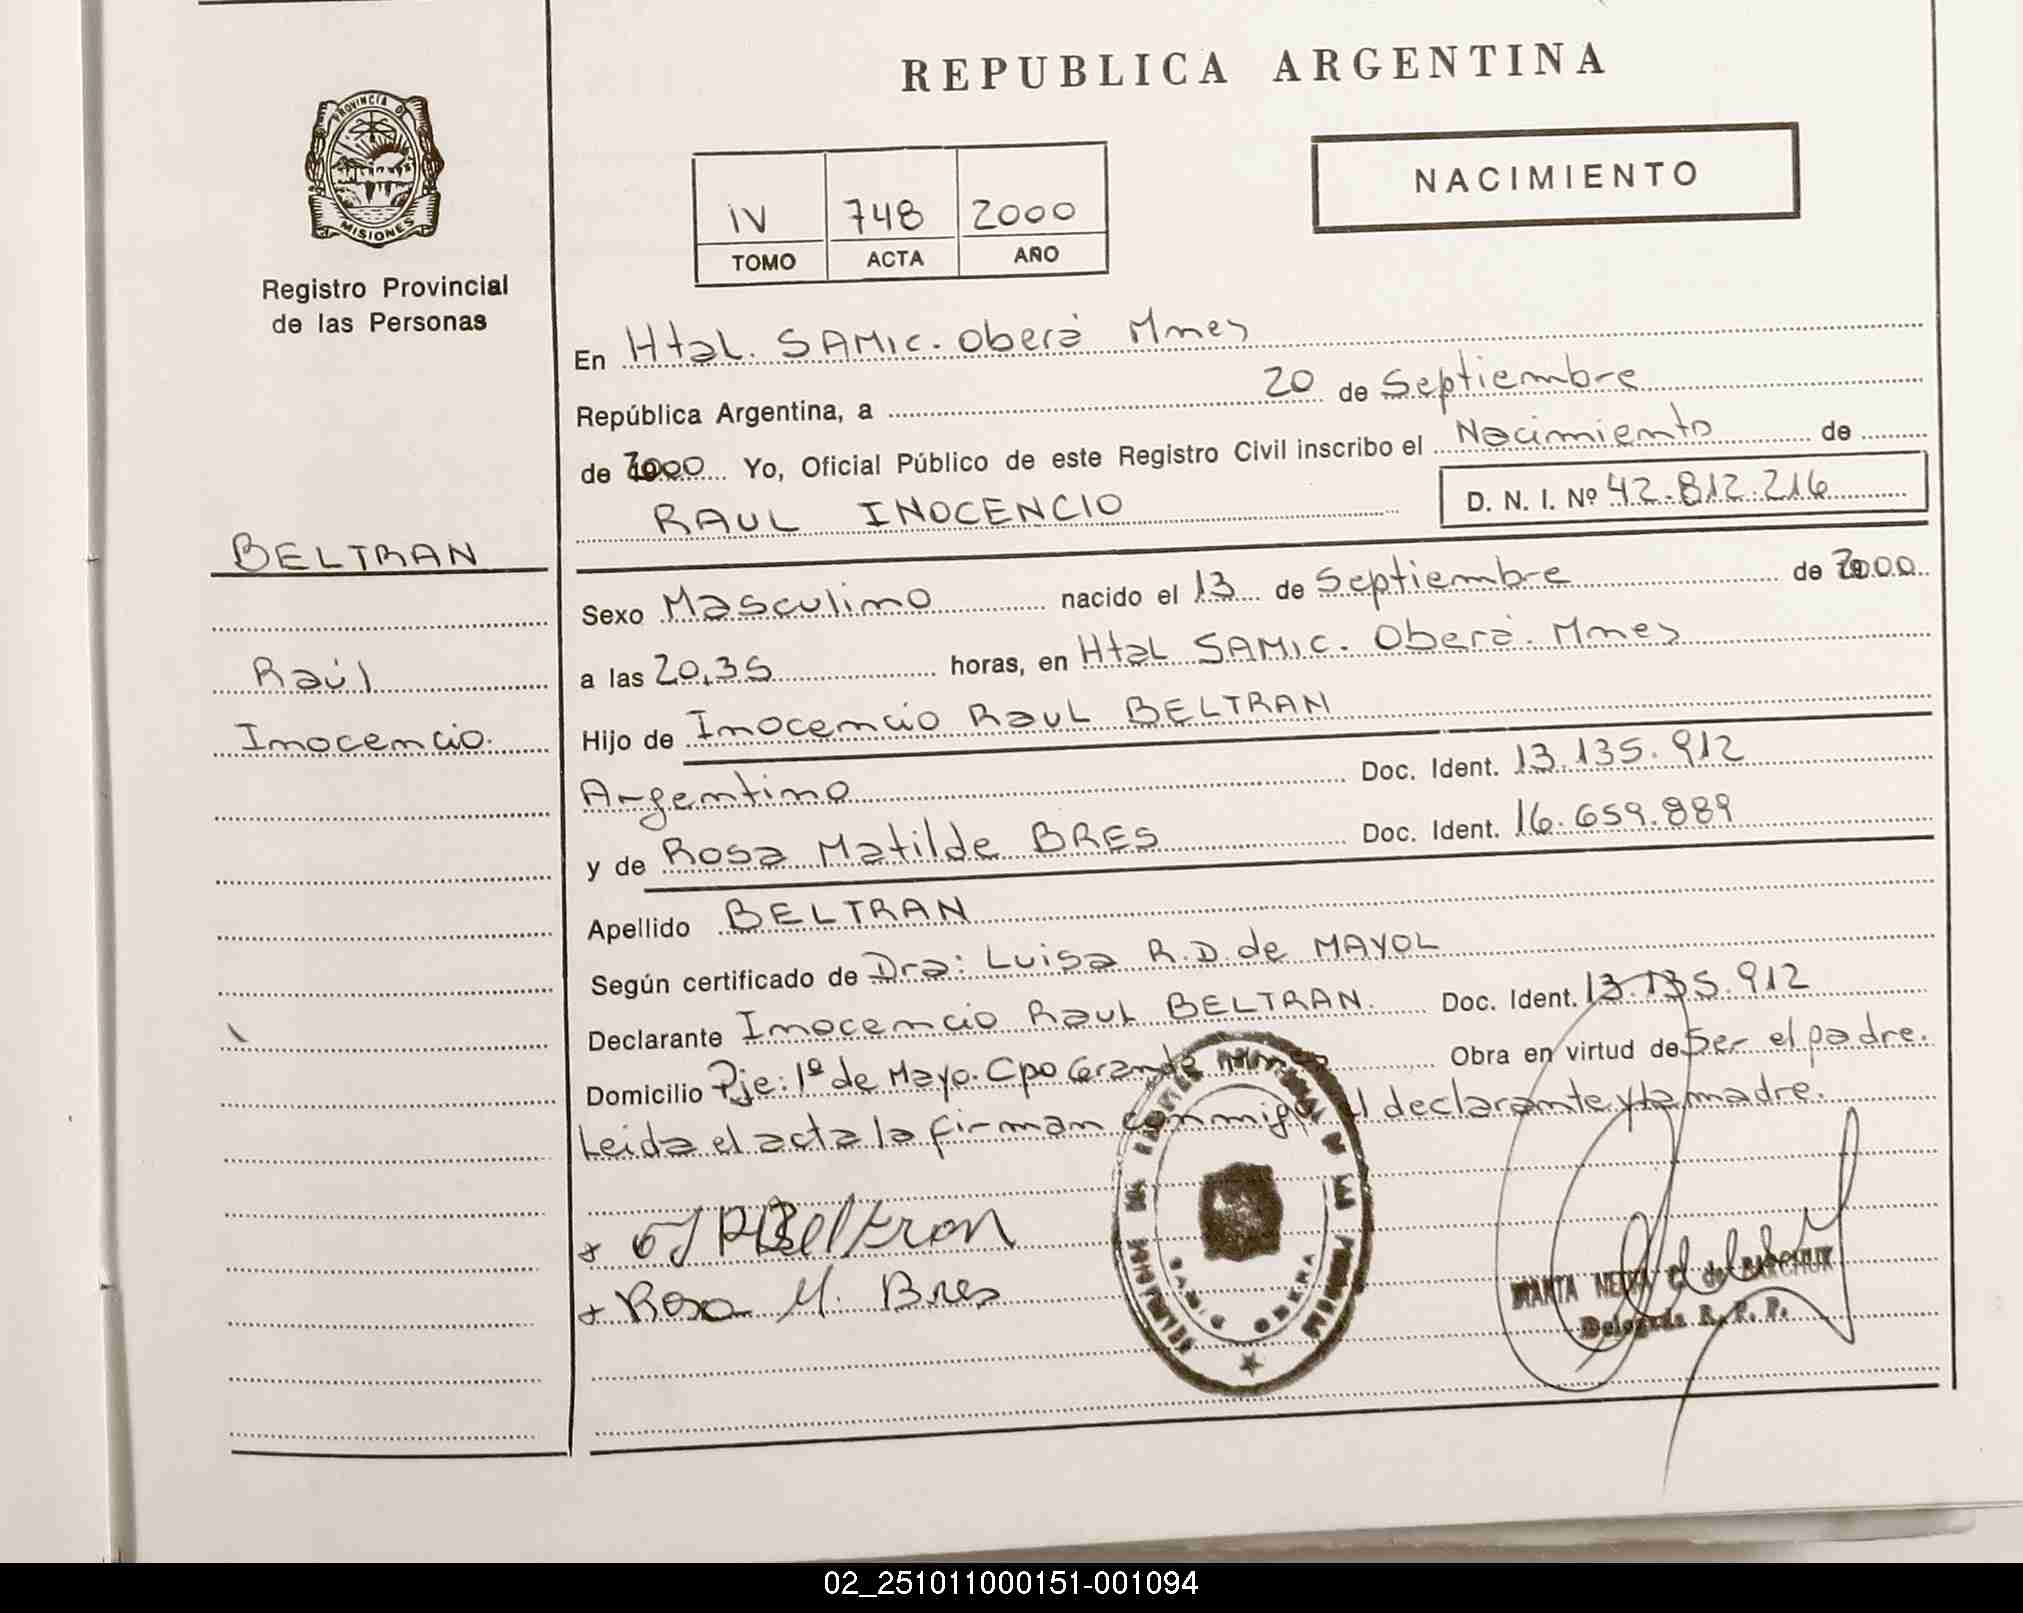 REPUBLICA ARGENTINA
PROVINCIA DE
MISIONES
Registro Provincial
de las Personas
NACIMIENTO
IV 748 2000
TOMO ACTA AÑO
En Htal. SAMIC. Oberá Mnes
República Argentina, a 20 de Septiembre
de 2000 Yo, Oficial Público de este Registro Civil inscribo el Nacimiento de
RAUL INOCENCIO D. N. I. Nº 42.812.216
BELTRAN
Raúl
Inocencio.
Sexo Masculino nacido el 13 de Septiembre de 2000
a las 20,35 horas, en Htal SAMIC. Oberá. Mnes
Hijo de Inocencio Raul BELTRAN
Argentino Doc. Ident. 13.135.912
y de Rosa Matilde BRES Doc. Ident. 16.659.889
Apellido BELTRAN
Según certificado de Dra: Luisa R.D. de MAYOL
Declarante Inocencio Raul BELTRAN. Doc. Ident. 13.135.912
Domicilio Pje: 1º de Mayo. Cpo Grande Mnes Obra en virtud de Ser el padre.
Leida el acta la firman conmigo el declarante y la madre.
Beltran
Rosa M. Bres
SAMIC OBERA
MARTA
Delegada R. P. P.
02_251011000151-001094